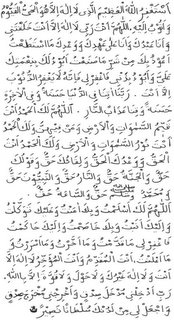 أَسْتَغْفِرُ اللهَ الْعَظِيْمَ الَّذِيْ لَا إِلٰهَ إِلَّا هُوَ الْحَيُّ الْقَيُّوْمُ
وَأَتُوْبُ إِلَيْهِ. اَللّٰهُمَّ أَنْتَ رَبِّيْ لَا إِلٰهَ إِلَّا أَنْتَ خَلَقْتَنِيْ
وَأَنَا عَبْدُكَ وَأَنَا عَلَى عَهْدِكَ وَوَعْدِكَ مَا اسْتَطَعْتُ
أَعُوْذُ بِكَ مِنْ شَرِّ مَا صَنَعْتُ أَبُوْءُ لَكَ بِنِعْمَتِكَ
عَلَيَّ وَأَبُوْءُ بِذَنْبِيْ فَاغْفِرْ لِيْ فَإِنَّهُ لَا يَغْفِرُ الذُّنُوْبَ
إِلَّا أَنْتَ. رَبَّنَا آتِنَا فِي الدُّنْيَا حَسَنَةً وَفِي الْآخِرَةِ
حَسَنَةً وَقِنَا عَذَابَ النَّارِ. اَللّٰهُمَّ لَكَ الْحَمْدُ أَنْتَ
قَيِّمُ السَّمٰوَاتِ وَالْأَرْضِ وَمَنْ فِيْهِنَّ وَلَكَ الْحَمْدُ
أَنْتَ نُوْرُ السَّمٰوَاتِ وَالْأَرْضِ وَلَكَ الْحَمْدُ أَنْتَ
الْحَقُّ وَوَعْدُكَ الْحَقُّ وَلِقَاؤُكَ حَقٌّ وَقَوْلُكَ
حَقٌّ وَالْجَنَّةُ حَقٌّ وَالنَّارُ حَقٌّ وَالنَّبِيُّوْنَ حَقٌّ
وَمُحَمَّدٌ حَقٌّ وَالسَّاعَةُ حَقٌّ
اَللّٰهُمَّ لَكَ أَسْلَمْتُ وَبِكَ آمَنْتُ وَعَلَيْكَ تَوَكَّلْتُ
وَإِلَيْكَ أَنَبْتُ وَبِكَ خَاصَمْتُ وَإِلَيْكَ حَاكَمْتُ
فَاغْفِرْ لِيْ مَا قَدَّمْتُ وَمَا أَخَّرْتُ وَمَا أَسْرَرْتُ
وَمَا أَعْلَنْتُ أَنْتَ الْمُقَدِّمُ وَأَنْتَ الْمُؤَخِّرُ لَا إِلٰهَ إِلَّا
أَنْتَ وَلَا حَوْلَ وَلَا قُوَّةَ إِلَّا بِاللهِ.
رَبِّ أَدْخِلْنِيْ مُدْخَلَ صِدْقٍ وَأَخْرِجْنِيْ مُخْرَجَ صِدْقٍ
وَاجْعَلْ لِيْ مِنْ لَدُنْكَ سُلْطَانًا نَصِيْرًا